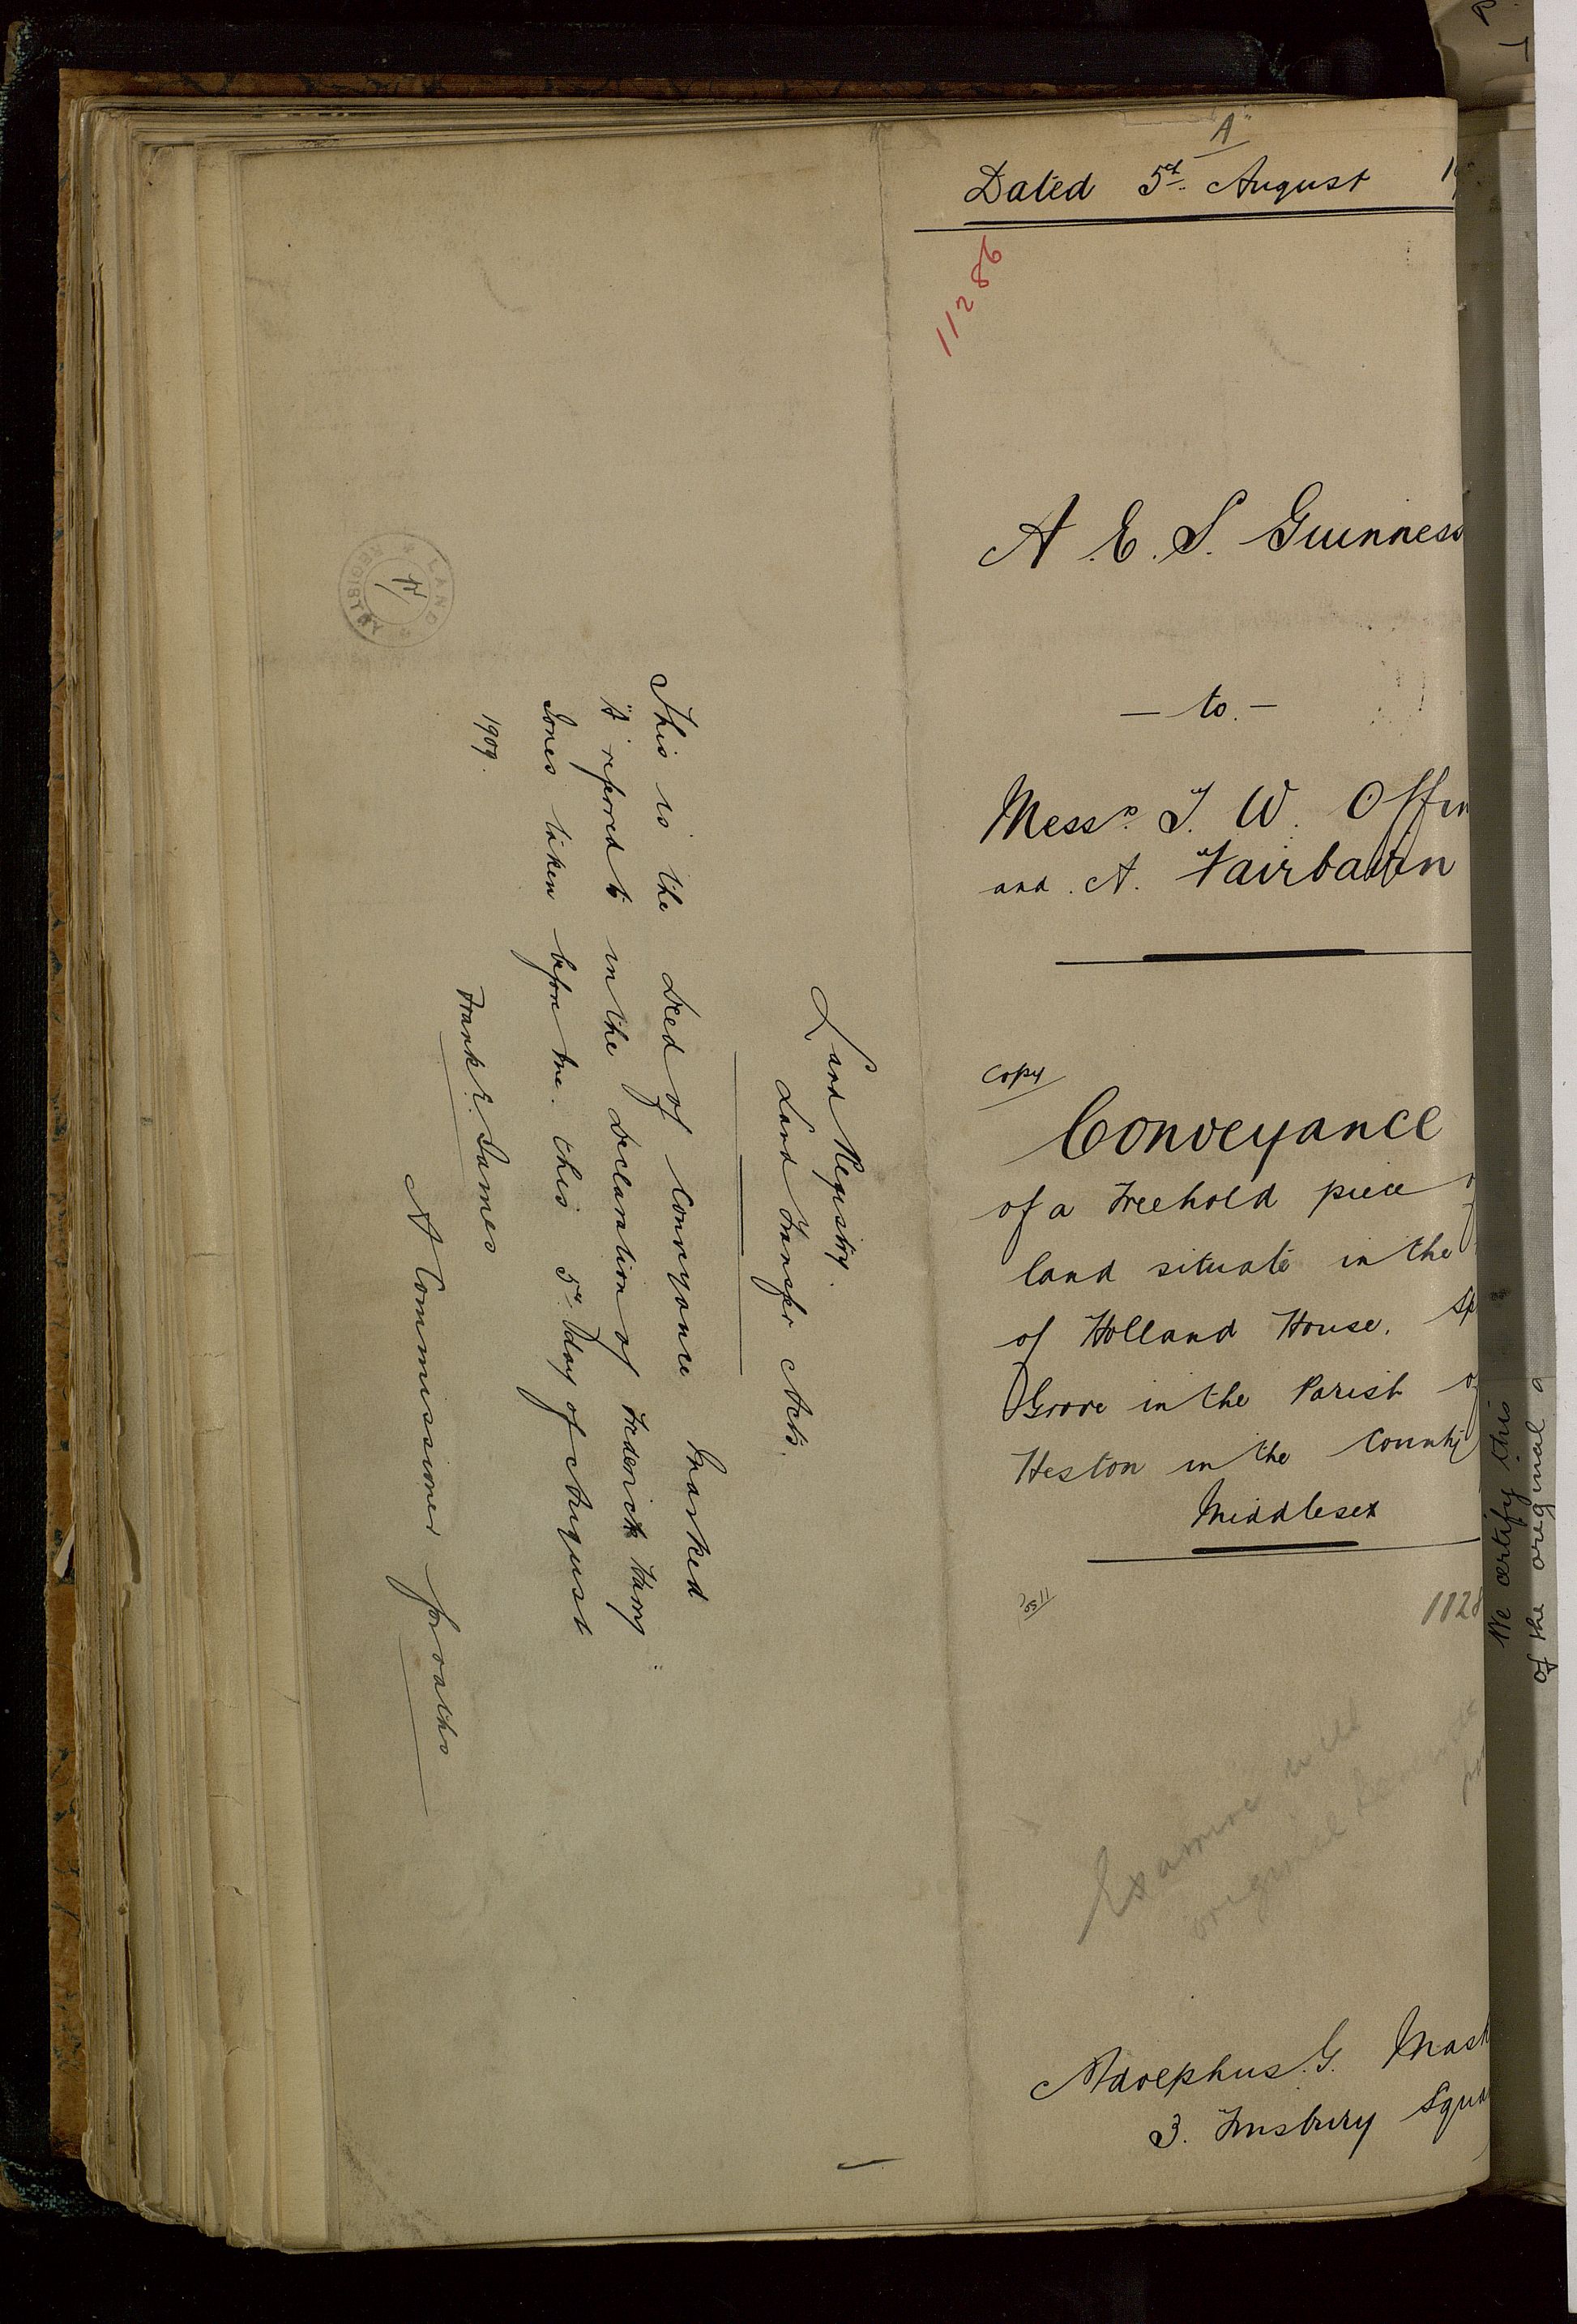 "A"
Dated 5th August 19
11286
A. E. S. Guinness
— to —
Messrs T. W. Offin
and A. Fairbairn
Copy
Conveyance
of a Freehold piece of
land situate in the
of Holland House, Sp
Grove in the Parish of
Heston in the County
Middlesex
1128
Examine with
original
Adolphus G. Mask
3. Finsbury Squa
Land Registry.
Land Transfer Acts.
This is the Deed of Conveyance marked
"A" referred to in the Declaration of Frederick Harry
Jones taken before me this 5th day of August
1909.
Frank E. James
A Commissioner for oaths
LAND REGISTRY
We certify this
of the original